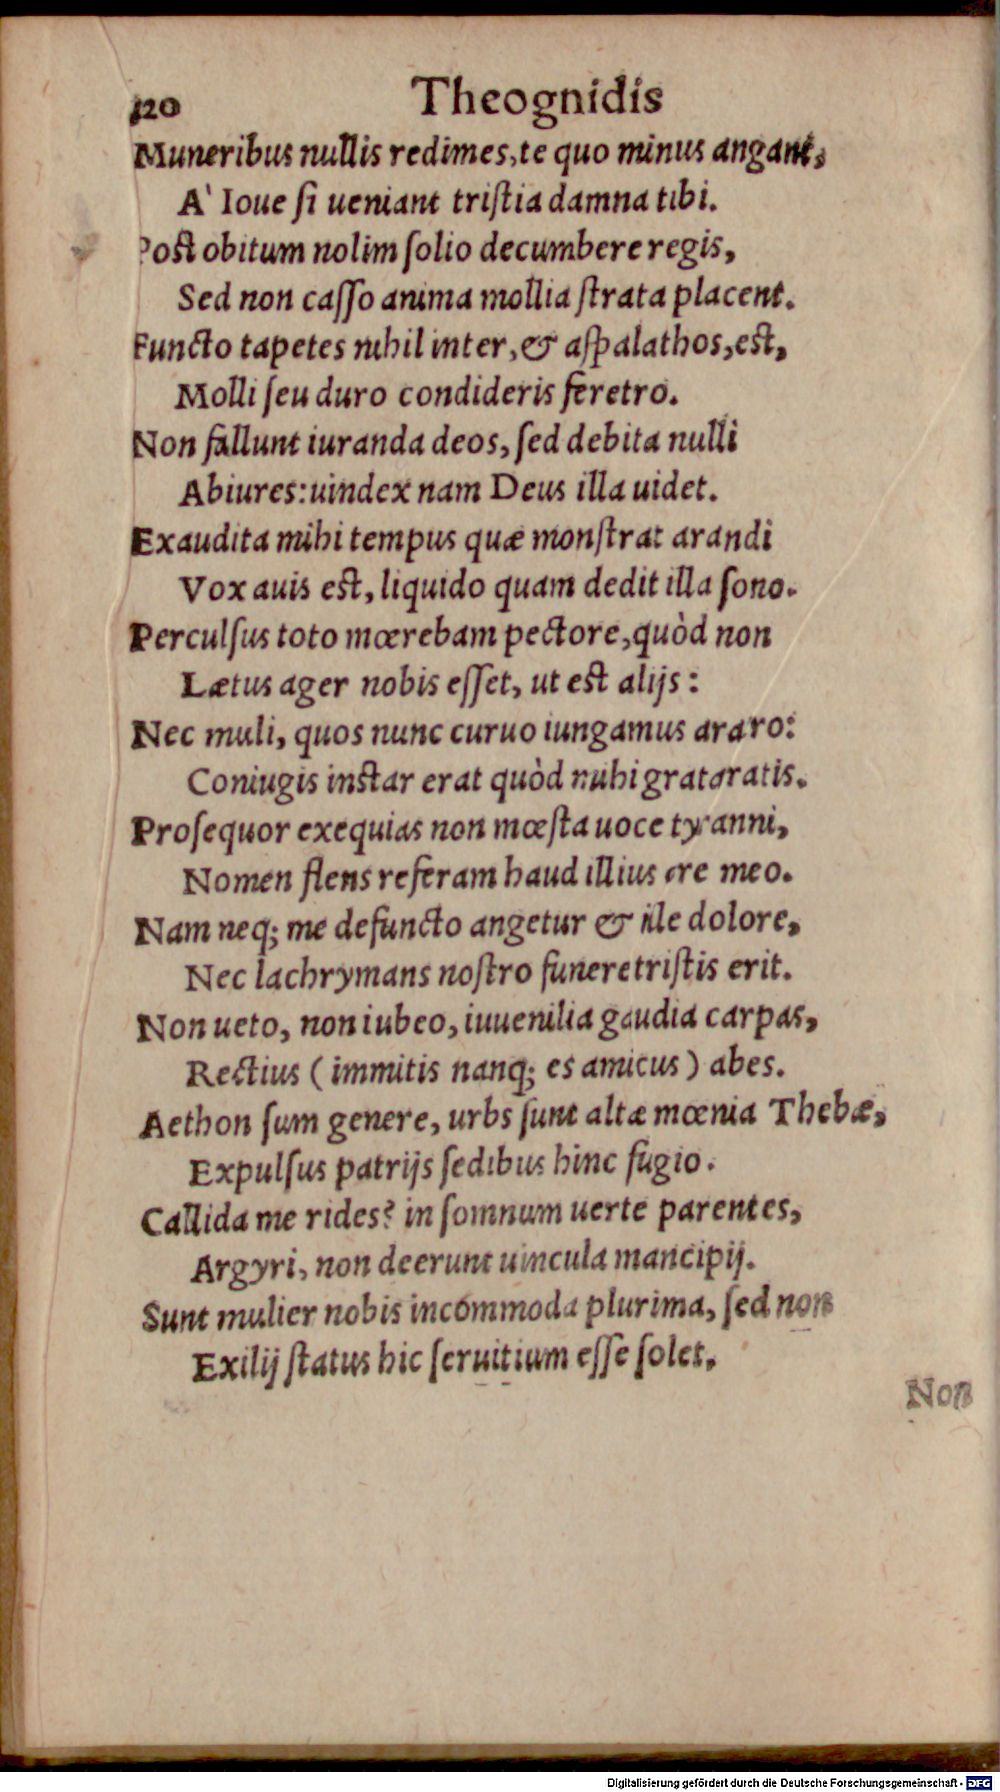 120 Theognidis
Muneribus nullis redimes, te quo minus angant,
A' Ioue ſi ueniant triſtia damna tibi.
Poſt obitum nolim ſolio decumbere regis,
Sed non caſſo anima mollia ſtrata placent.
Functo tapetes nihil inter, & aſpalathos, eſt,
Molli ſeu duro condideris feretro.
Non fallunt iuranda deos, ſed debita nulli
Abiures: uindex nam Deus illa uidet.
Exaudita mihi tempus quæ monſtrat arandi
Vox auis eſt, liquido quam dedit illa ſono.
Perculſus toto mœrebam pectore, quòd non
Lætus ager nobis eſſet, ut eſt alijs:
Nec muli, quos nunc curuo iungamus araro:
Coniugis inſtar erat quòd mihi grata ratis.
Proſequor exequias non mœſta uoce tyranni,
Nomen flens referam haud illius ore meo.
Nam neq; me defuncto angetur & ille dolore,
Nec lachrymans noſtro funere triſtis erit.
Non ueto, non iubeo, iuuenilia gaudia carpas,
Rectius (immitis nanq; es amicus) abes.
Aethon ſum genere, urbs ſunt altæ mœnia Thebæ,
Expulſus patrijs ſedibus hinc fugio.
Callida me rides? in ſomnum uerte parentes,
Argyri, non deerunt uincula mancipij.
Sunt mulier nobis incommoda plurima, ſed non
Exilij ſtatus hic ſeruitium eſſe ſolet,
Non
Digitalisierung gefördert durch die Deutsche Forschungsgemeinschaft - DFG